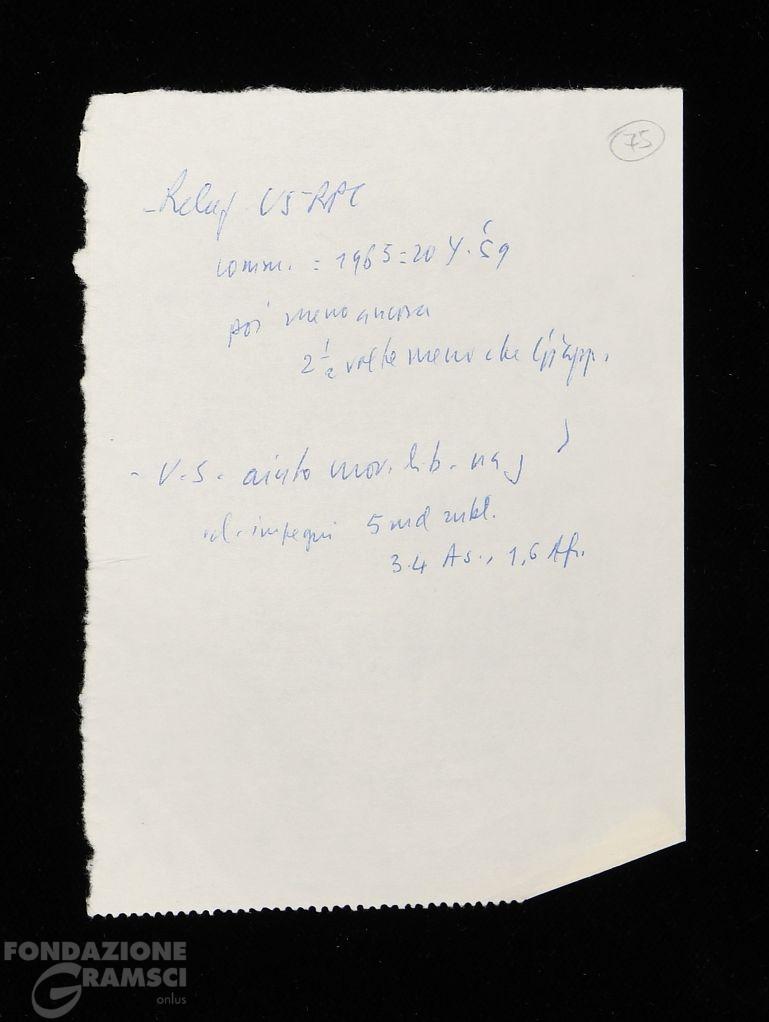 75
- Relaz US-RPC
comm. = 1965 = 20
poi meno ancora
2 1/2 volte meno che
- U.S. aiuto mov. lib. naz
impegni 5 md rubl.
3.4 As., 1,6 Afr.
FONDAZIONE
GRAMSCI
onlus